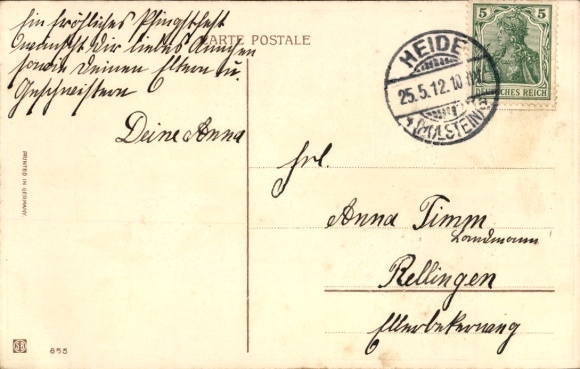 Ein fröhliches Pfingstfest
wünscht Dir liebes Annchen
sowie Deinen Eltern u.
Geschwistern
Deine Anna
CARTE POSTALE
HEIDE
25.5.12.10-11V.
(HOLSTEIN)
5 5
DEUTSCHES REICH
Frl.
Anna Timm
Landmann
Rellingen
Ellerbekerweg
PRINTED IN GERMANY.
855